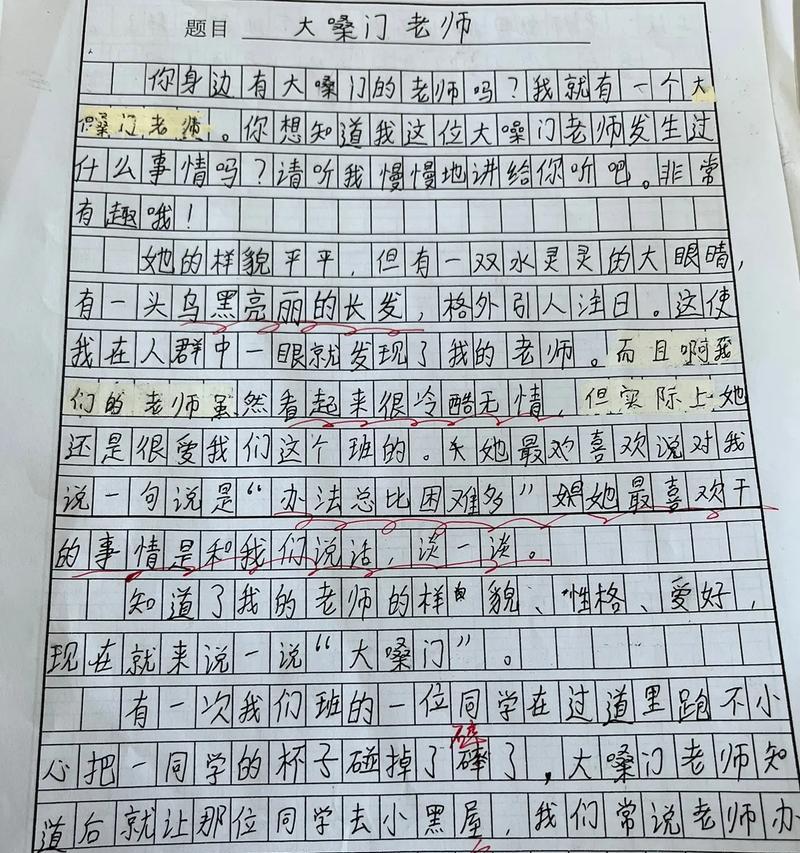 题目 大嗓门老师
你身边有大嗓门的老师吗？我就有一个大
嗓门老师。你想知道我这位大嗓门老师发生过
什么事情吗？请听我慢慢地讲给你听吧。非常
有趣哦！
她的样貌平平，但有一双水灵灵的大眼睛，
有一头乌黑亮丽的长发，格外引人注目。这使
我在人群中一眼就发现了我的老师。而且啊我
们的老师虽然看起来很冷酷无情，但实际上她
还是很爱我们这个班的。她最欢喜欢说对我
说一句说是“办法总比困难多”她最喜欢干
的事情是和我们说话，谈一谈。
知道了我的老师的样貌、性格、爱好，
现在就来说一说“大嗓门”。
有一次我们班的一位同学在过道里跑不小
碎
心把一同学的杯子碰掉了碎了，大嗓门老师知
道后就让那位同学去小黑屋，我们常说老师办